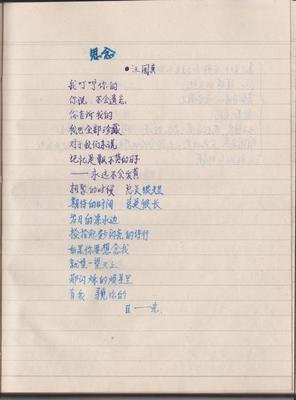 思念
●汪国真
我叮咛你的
你说 不会遗忘
你告诉我的
我也全部珍藏
对于我们来说
记忆是飘不落的日子
——永远不会发黄
相聚的时候 总是很短
期待的时间 总是很长
岁月的溪水边
捡拾起多少闪亮的诗行
如果你要想念我
就望一望天上
那闪烁的繁星里
有我 觅你的
目——光